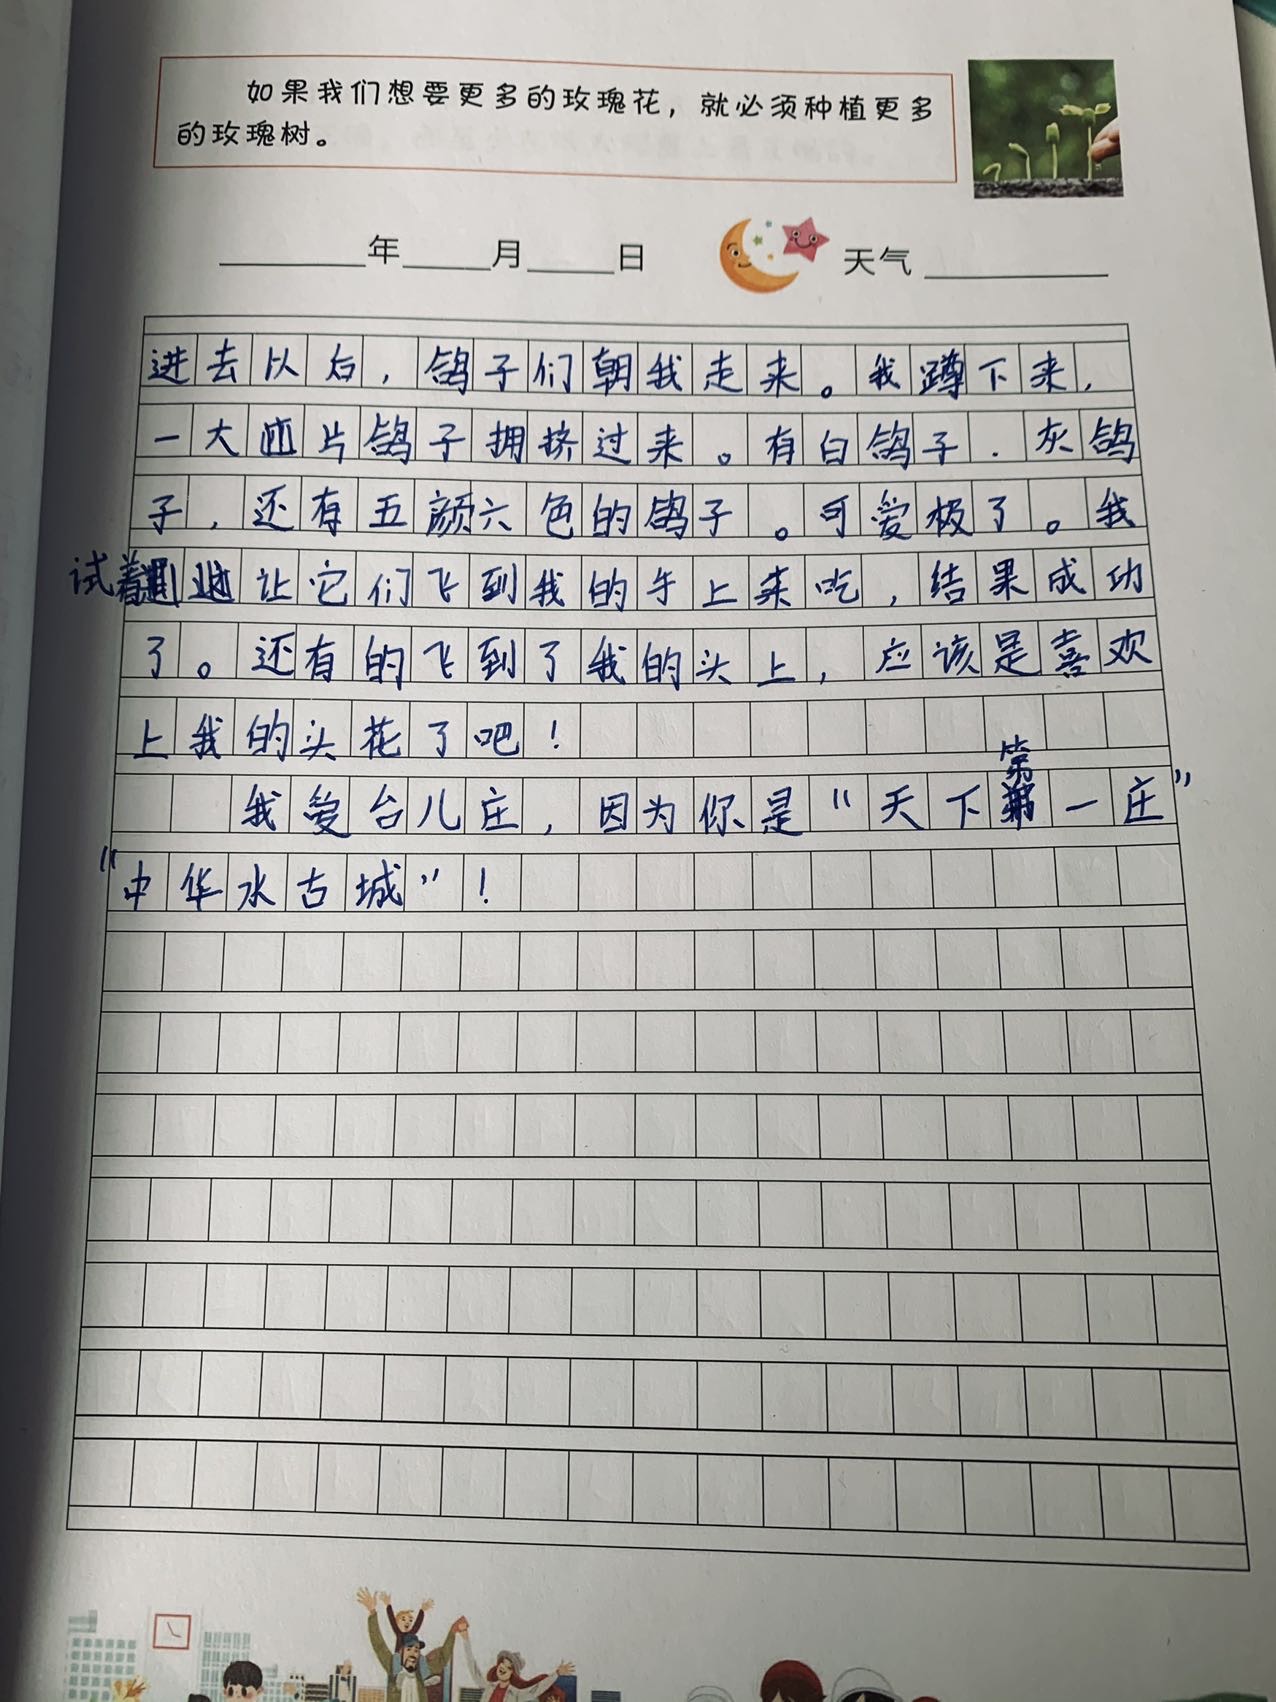 如果我们想要更多的玫瑰花，就必须种植更多
的玫瑰树。
年 月 日 天气
进去以后，鸽子们朝我走来。我蹲下来，
一大片鸽子拥挤过来。有白鸽子．灰鸽
子，还有五颜六色的鸽子。可爱极了。我
试着让它们飞到我的手上来吃，结果成功
了。还有的飞到了我的头上，应该是喜欢
上我的头花了吧！
我爱台儿庄，因为你是“天下第一庄”
“中华水古城”！